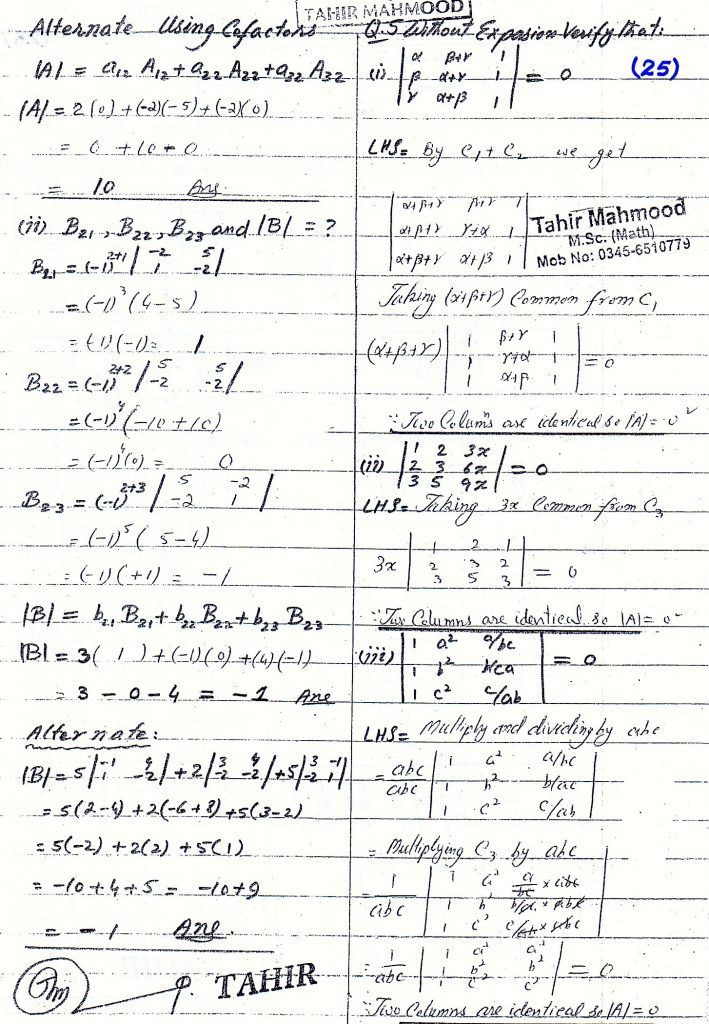 TAHIR MAHMOOD
Alternate Using Cofactors
|A| = a₁₂ A₁₂ + a₂₂ A₂₂ + a₃₂ A₃₂
|A| = 2(0) + (-2)(-5) + (-2)(0)
= 0 + 10 + 0
= 10 Ans.
(ii) B₂₁, B₂₂, B₂₃ and |B| = ?
B₂₁ = (-1)²⁺¹ | -2 5
1 -2 |
= (-1)³ (4-5)
= (-1)(-1) = 1
B₂₂ = (-1)²⁺² | 5 5
-2 -2 |
= (-1)⁴ (-10+10)
= (-1)⁴(0) = 0
B₂₃ = (-1)²⁺³ | 5 -2
-2 1 |
= (-1)⁵ (5-4)
= (-1)(+1) = -1
|B| = b₂₁ B₂₁ + b₂₂ B₂₂ + b₂₃ B₂₃
|B| = 3(1) + (-1)(0) + (4)(-1)
= 3 - 0 - 4 = -1 Ans
Alternate:
|B| = 5 | -1 4
1 -2 | + 2 | 3 4
-2 -2 | + 5 | 3 -1
-2 1 |
= 5(2-4) + 2(-6+8) + 5(3-2)
= 5(-2) + 2(2) + 5(1)
= -10 + 4 + 5 = -10 + 9
= -1 Ans.
Tm
P. TAHIR
Q.5 Without Expasion Verify that:
(25)
(i) | α β+γ 1
β α+γ 1
γ α+β 1 | = 0
LHS = By C₁ + C₂ we get
| α+β+γ β+γ 1
α+β+γ γ+α 1
α+β+γ α+β 1 |
Tahir Mahmood
M.Sc. (Math)
Mob No: 0345-6510779
Taking (α+β+γ) Common from C₁
(α+β+γ) | 1 β+γ 1
1 γ+α 1
1 α+β 1 | = 0
∵ Two Colums are identical so |A| = 0
(ii) | 1 2 3x
2 3 6x
3 5 9x | = 0
LHS = Taking 3x Common from C₃
3x | 1 2 1
2 3 2
3 5 3 | = 0
∵ Two Columns are identical so |A| = 0
(iii) | 1 a² a/bc
1 b² b/ca
1 c² c/ab | = 0
LHS = Multiply and dividing by abc
= abc/abc | 1 a² a/bc
1 b² b/ac
1 c² c/ab |
= Multiplying C₃ by abc
= 1/abc | 1 a² a/bc × abc
1 b² b/ac × abc
1 c² c/ab × abc |
= 1/abc | 1 a² a²
1 b² b²
1 c² c² | = 0
∵ Two Columns are identical so |A| = 0